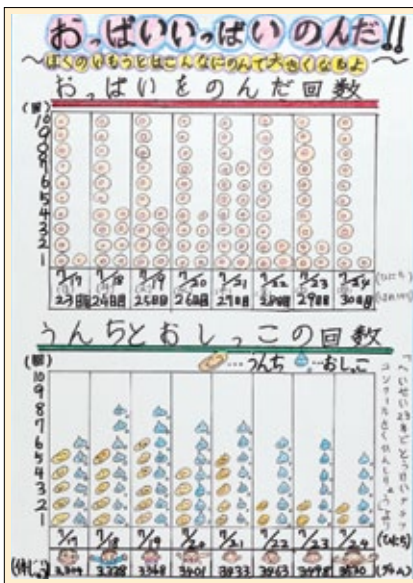 おっぱいいっぱいのんだ!!
～ぼくのいもうとはこんなにのんで大きくなるよ～
おっぱいをのんだ回数
(回)
10
9
8
7
6
5
4
3
2
1
7/17 7/18 7/19 7/20 7/21 7/22 7/23 7/24
23日目 24日目 25日目 26日目 27日目 28日目 29日目 30日目
うんちとおしっこの回数
(回)
…うんち …おしっこ
10
9
8
7
6
5
4
3
2
1
7/17 7/18 7/19 7/20 7/21 7/22 7/23 7/24 (ひにち)
3328 3368 3401 3433 3463 3498 3530 (グラム)